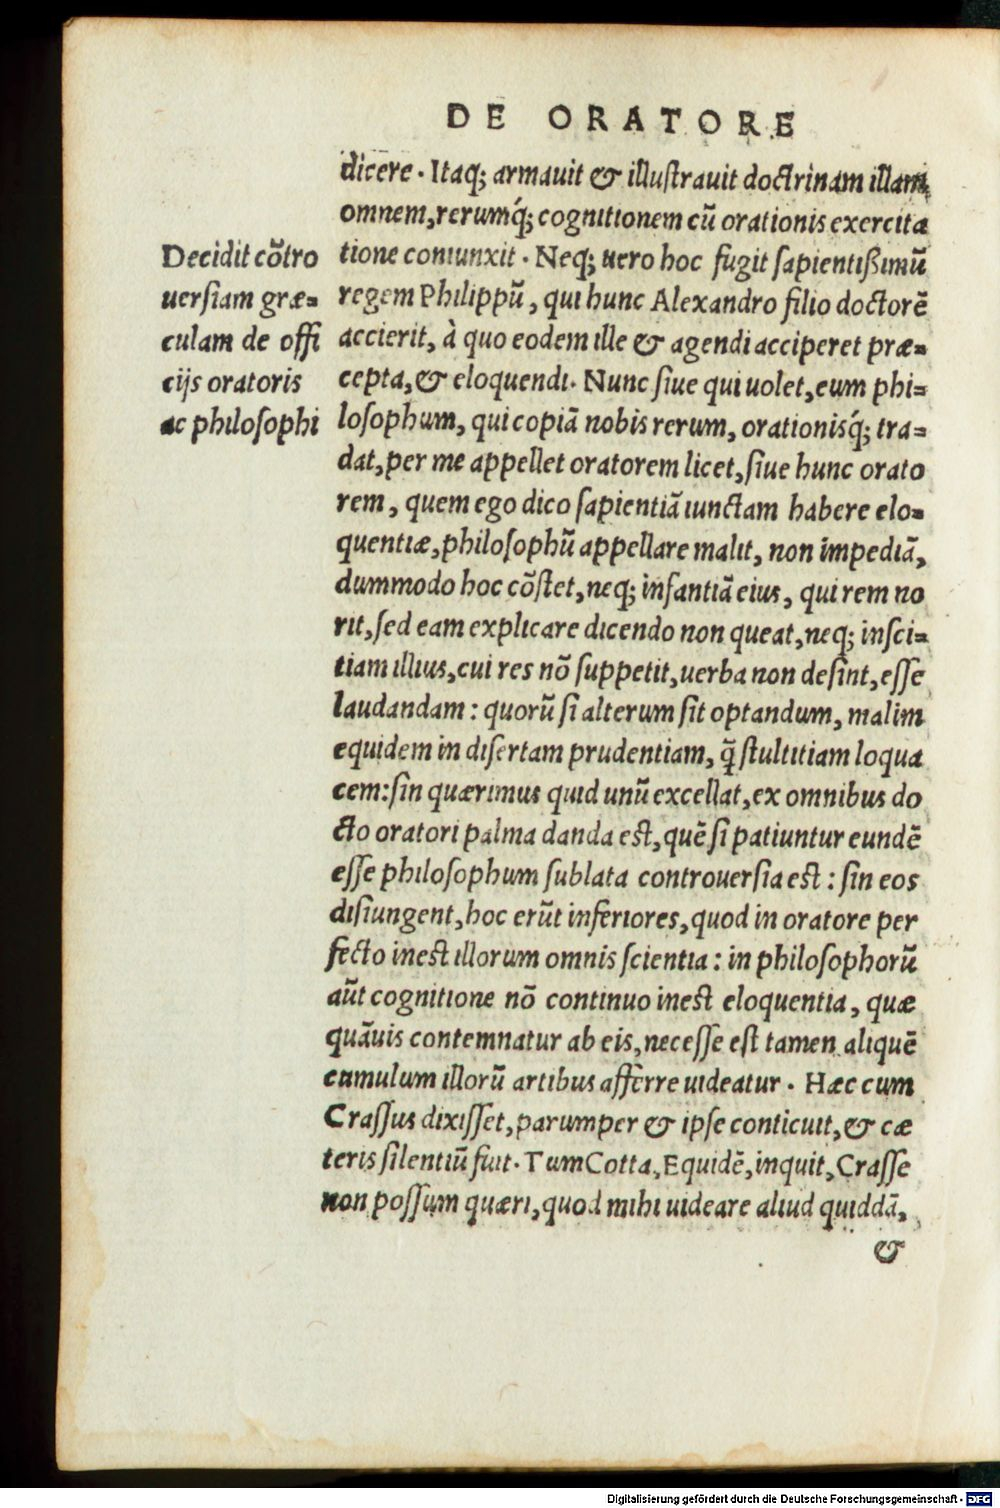 DE ORATORE
dicere. Itaq; armauit & illuſtrauit doctrinam illam
omnem, rerumq́; cognitionem cū orationis exercita
tione coniunxit. Neq; uero hoc fugit ſapientißimū
regem Philippū, qui hunc Alexandro filio doctorē
accierit, à quo eodem ille & agendi acciperet præ=
cepta, & eloquendi. Nunc ſiue qui uolet, eum phi=
loſophum, qui copiā nobis rerum, orationisq́; tra=
dat, per me appellet oratorem licet, ſiue hunc orato
rem, quem ego dico ſapientiā iunctam habere elo=
quentiæ, philoſophū appellare malit, non impediā,
dummodo hoc cōſtet, neq; infantiā eius, qui rem no
rit, ſed eam explicare dicendo non queat, neq; inſci=
tiam illius, cui res nō ſuppetit, uerba non deſint, eſſe
laudandam: quorū ſi alterum ſit optandum, malim
equidem in diſertam prudentiam, q̄ ſtultitiam loqua
cem: ſin quærimus quid unū excellat, ex omnibus do
cto oratori palma danda eſt, quē ſi patiuntur eundē
eſſe philoſophum ſublata controuerſia eſt: ſin eos
diſiungent, hoc erūt inferiores, quod in oratore per
fecto ineſt illorum omnis ſcientia: in philoſophorū
aūt cognitione nō continuo ineſt eloquentia, quæ
quāuis contemnatur ab eis, neceſſe eſt tamen aliquē
cumulum illorū artibus afferre uideatur. Hæc cum
Craſſus dixiſſet, parumper & ipſe conticuit, & cæ
teris ſilentiū fuit. Tum Cotta, Equidē, inquit, Craſſe
non poſſum quæri, quod mihi uideare aliud quiddā,
&
Decidit cōtro
uerſiam græ=
culam de offi
cijs oratoris
ac philoſophi
Digitalisierung gefördert durch die Deutsche Forschungsgemeinschaft - DFG